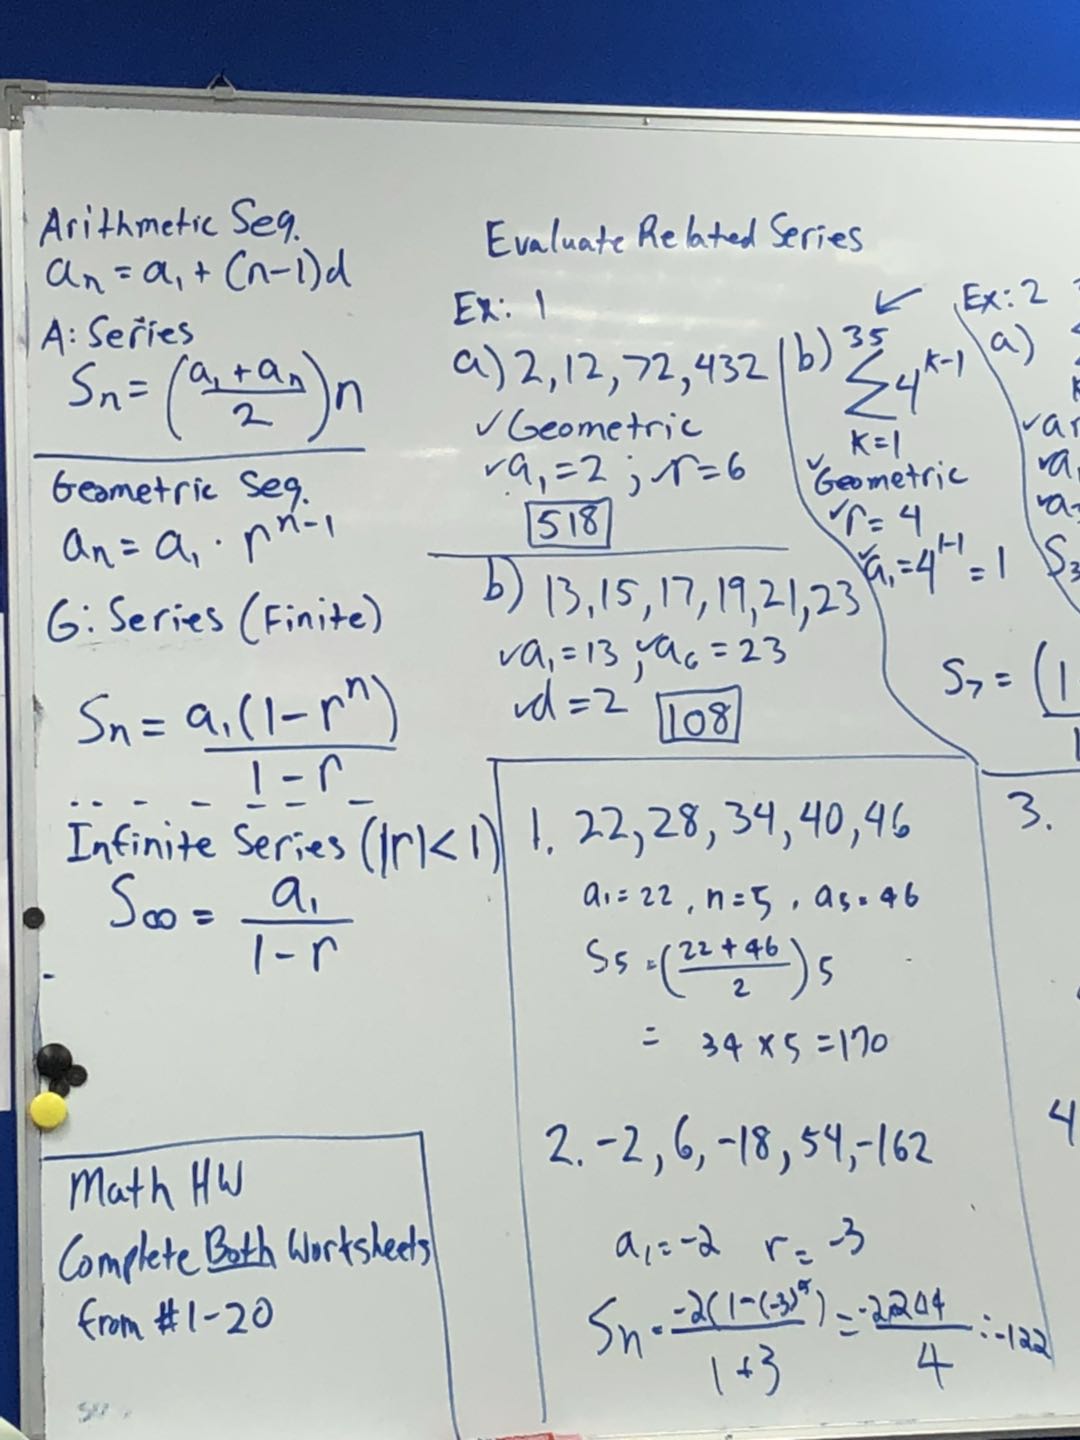 Arithmetic Seq.
an = a1 + (n-1)d
A: Series
Sn = ((a1 + an)/2)n
Geometric Seq.
an = a1 · r^n-1
G: Series (Finite)
Sn = a1(1-r^n)/(1-r)
Infinite Series (|r|<1)
S∞ = a1/(1-r)
Math HW
Complete Both Worksheets
from #1-20
Evaluate Related Series
Ex: 1
a) 2, 12, 72, 432
✓Geometric
✓a1 = 2 ; ✓r = 6
518
b) 13, 15, 17, 19, 21, 23
✓a1 = 13, ✓a6 = 23
✓d = 2
108
b) 35
Σ 4^k-1
K=1
✓Geometric
✓r = 4
✓a1 = 4^1-1 = 1
Ex: 2
a)
S7 = (1
1. 22, 28, 34, 40, 46
a1 = 22, n = 5, a5 = 46
S5 = ((22 + 46)/2) 5
= 34 × 5 = 170
2. -2, 6, -18, 54, -162
a1 = -2 r = -3
Sn = -2(1-(-3)^5)/(1+3) = /4 = -122
3.
4